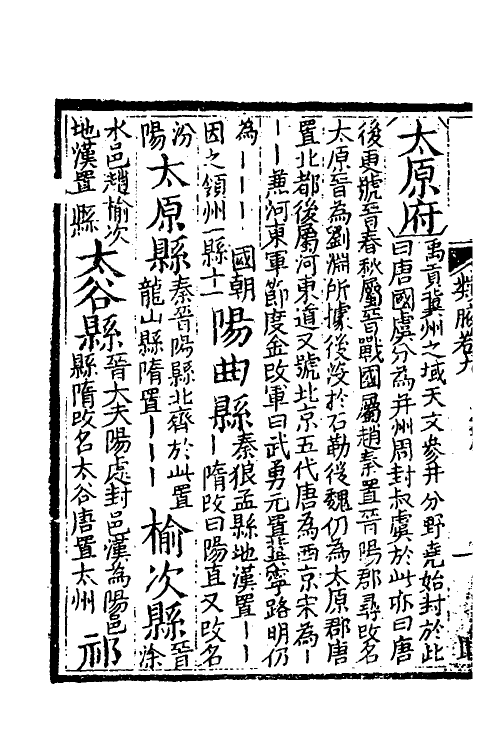 太原府 禹貢冀州之域天文參井分野堯始封於此
曰唐國虞分為并州周封叔虞於此亦曰唐
後更號晉春秋屬晉戰國屬趙秦置晉陽郡尋改名
太原晉為劉淵所據後沒於石勒後魏仍為太原郡唐
置北都後屬河東道又號北京五代唐為西京宋為｜
｜｜兼河東軍節度金改軍曰武勇元置冀寧路明仍
為｜｜｜國朝
因之領州一縣十一 陽曲縣 秦狼孟縣地漢置｜｜
｜隋改曰陽直又改名
汾
陽 太原縣 秦晉陽縣北齊於此置
龍山縣隋置｜｜｜ 榆次縣 晉
涂
水邑趙榆次
地漢置縣 太谷縣 晉大夫陽處封邑漢為陽邑
縣隋改名太谷唐置太州 祁
類腋卷九